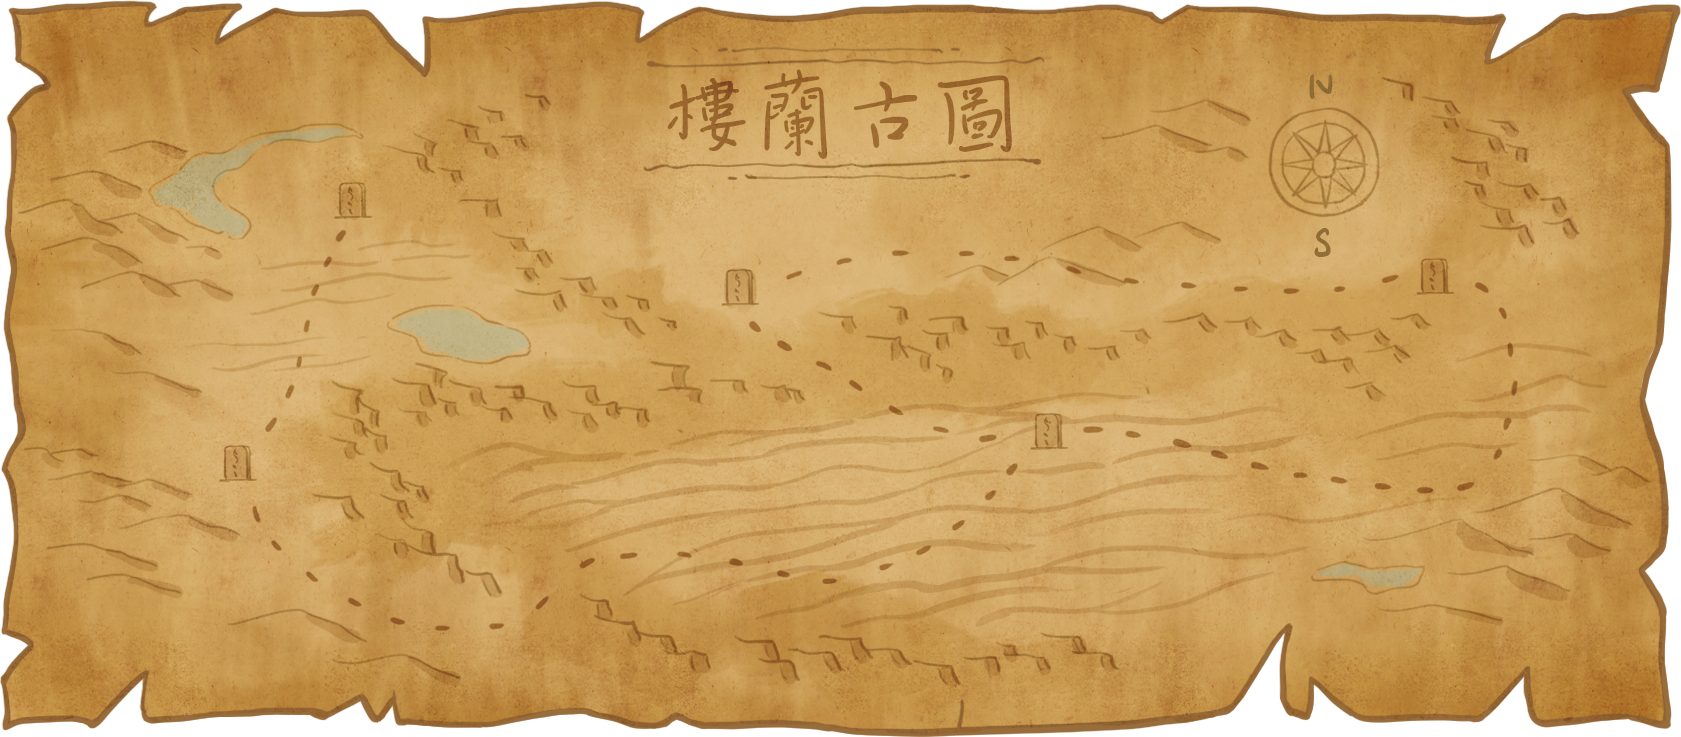 樓蘭古圖
N
S